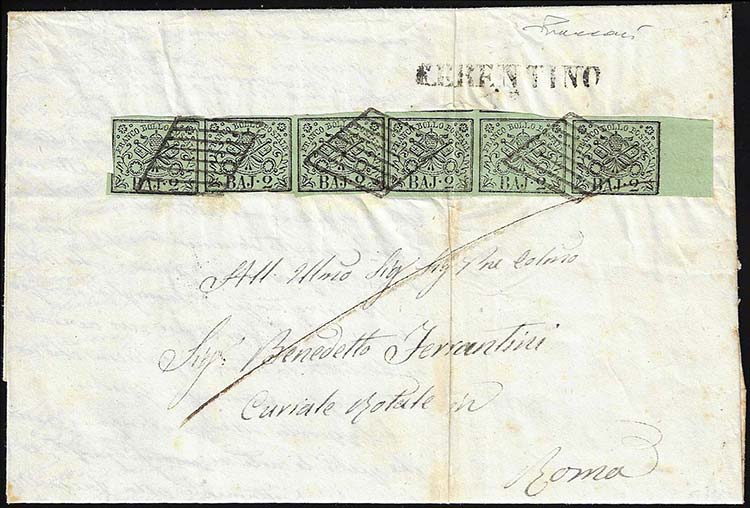 FERENTINO
FRANCO BOLLO POSTALE FRANCO BOLLO POSTALE FRANCO BOLLO POSTALE FRANCO BOLLO POSTALE FRANCO BOLLO POSTALE FRANCO BOLLO POSTALE
BAJ-2 BAJ-2 BAJ-2 BAJ-2 BAJ-2 BAJ-2
All Illmo Sig Sig Pne Colmo
Sigr. Benedetto Ferrantini
Curiale Rotale in
Roma